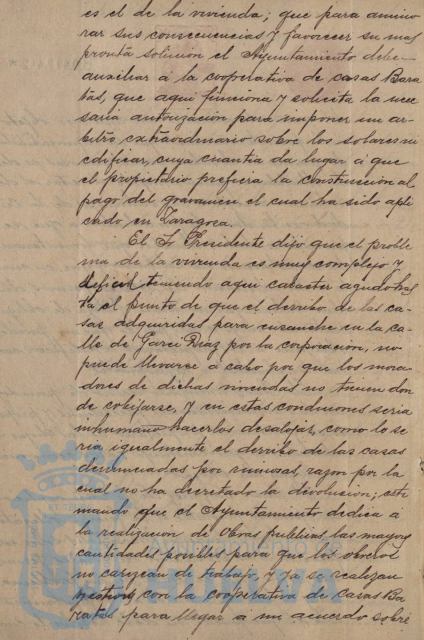 es el de la vivienda; que para amino
rar sus consecuencias y favorecer su mas
pronta solucion el Ayuntamiento debe
auxiliar á la cooperativa de casas Bara
tas, que aqui funciona y solicita la nece
saria autorización para imponer un ar-
bitro extraordinario sobre los solares sin
edificar, cuya cuantia da lugar á que
el propietario prefiera la construccion al
pago del gravamen el cual ha sido apli
cado en Zaragoza.
El Sr Presidente dijo que el proble
ma de la vivienda es muy complejo y
dificil teniendo aqui caracter agudo has
ta el punto de que el derribo de las ca-
sas adquiridas para ensanche en la ca
lle de Garci Diaz por la corporación, no
puede llevarse á cabo por que los mora-
dores de dichas viviendas no tienen don
de cobijarse, y en estas condiciones seria
inhumano hacerlos desalojar, como lo se
ria igualmente el derribo de las casas
denunciadas por ruinosas, razon por la
cual no ha decretado la disolusion; esti
mando que el Ayuntamiento dedica á
la realizacion de Obras publicas las mayores
cantidades posibles para que los obreros
no carezcan de trabajo, y ya se realizan
gestiones con la cooperativa de Casas Ba
ratas para llegar a un acuerdo sobre